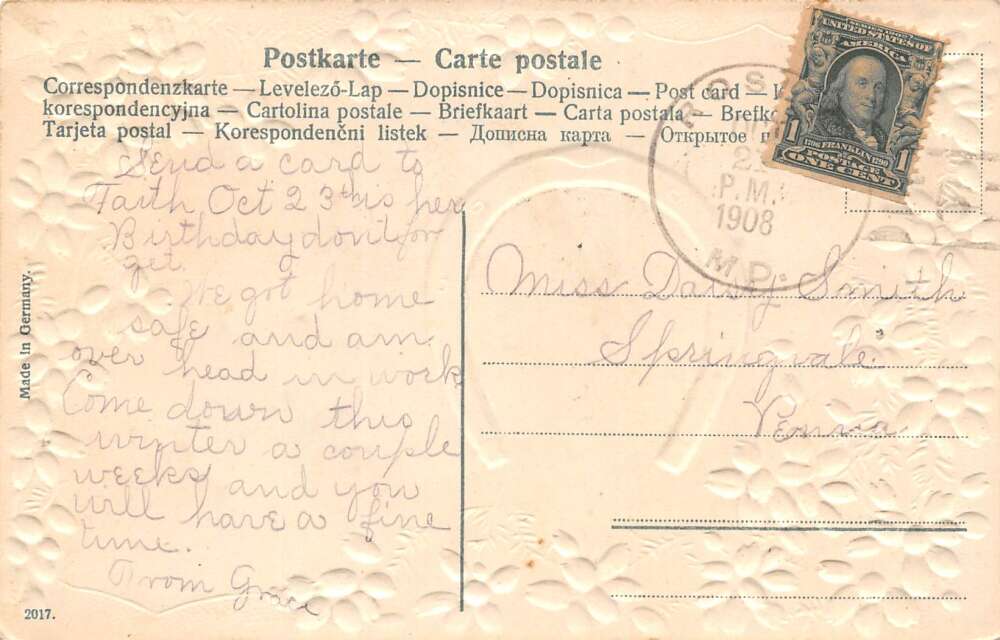 Postkarte — Carte postale
Correspondenzkarte — Levelező-Lap — Dopisnice — Dopisnica — Post card —
korespondencyjna — Cartolina postale — Briefkaart — Carta postala — Brefko
Tarjeta postal — Korespondenčni listek — Дописна карта — Открытое п
Send a card to
Faith Oct 23th is her
Birthday dont for
get.
We got home
safe and am
over head in work
Come down this
winter a couple
weeks and you
will have a fine
time.
From Grace
Made in Germany.
2017.
P.M.
1908
MD.
SERIES 1902
UNITED STATES OF
AMERICA
1706 FRANKLIN 1790
1 POSTAGE 1
ONE CENT
Miss Daisy Smith
Springvale
Penna